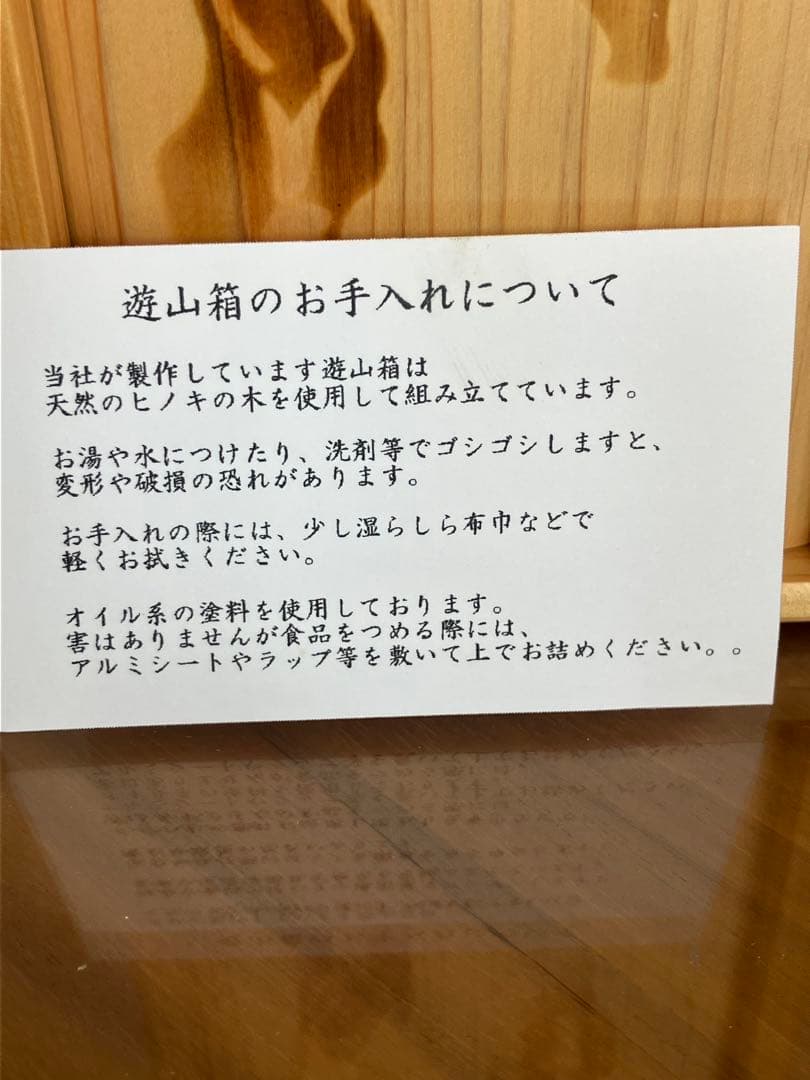 遊山箱のお手入れについて
当社が製作しています遊山箱は
天然のヒノキの木を使用して組み立てています。
お湯や水につけたり、洗剤等でゴシゴシしますと、
変形や破損の恐れがあります。
お手入れの際には、少し湿らしら布巾などで
軽くお拭きください。
オイル系の塗料を使用しております。
害はありませんが食品をつめる際には、
アルミシートやラップ等を敷いて上でお詰めください。。